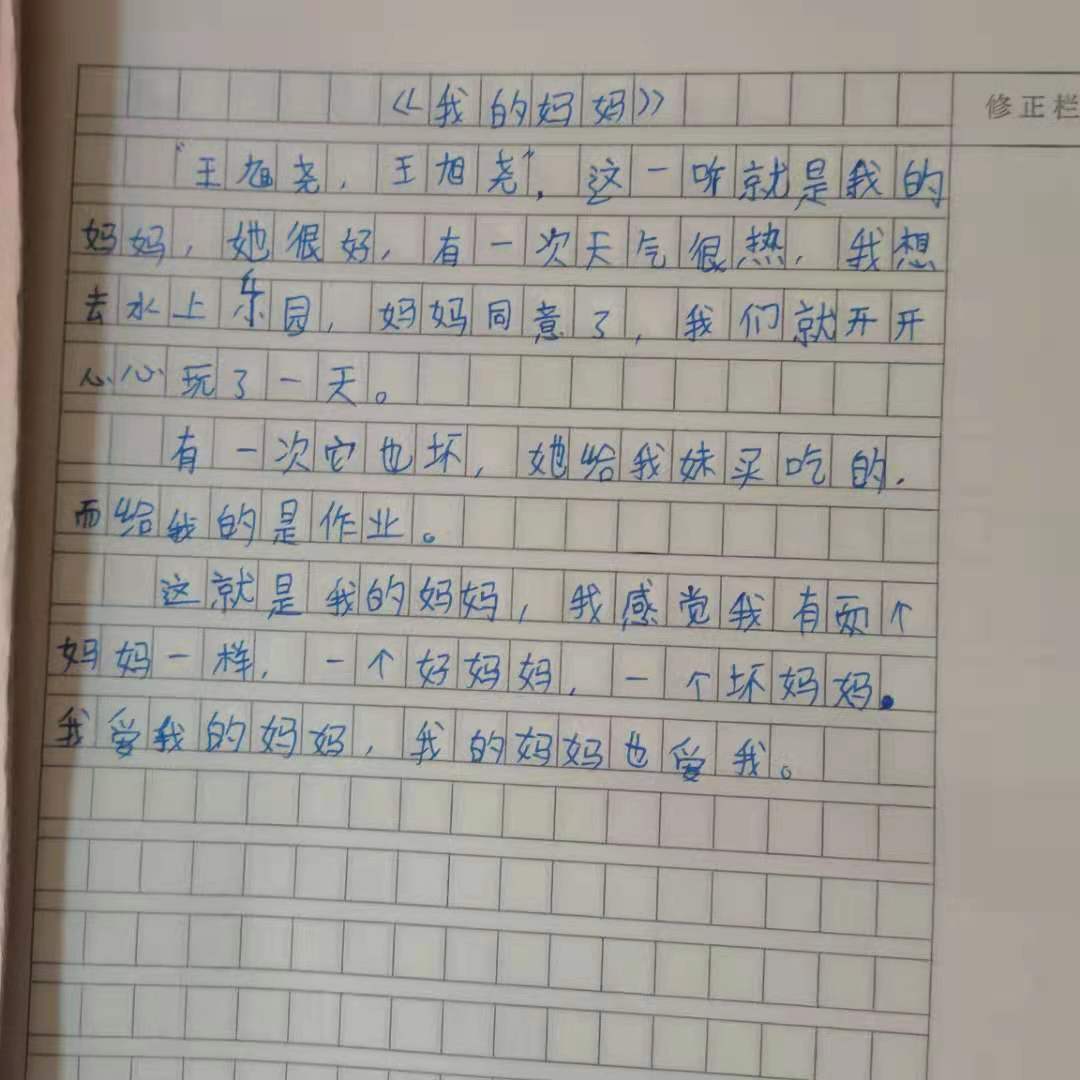 《我的妈妈》
修正栏
“王旭尧,王旭尧”,这一听就是我的
妈妈,她很好,有一次天气很热,我想
去水上乐园,妈妈同意了,我们就开开
心心玩了一天。
有一次它也坏,她给我妹买吃的,
而给我的是作业。
这就是我的妈妈,我感觉我有两个
妈妈一样,一个好妈妈,一个坏妈妈。
我爱我的妈妈,我的妈妈也爱我。